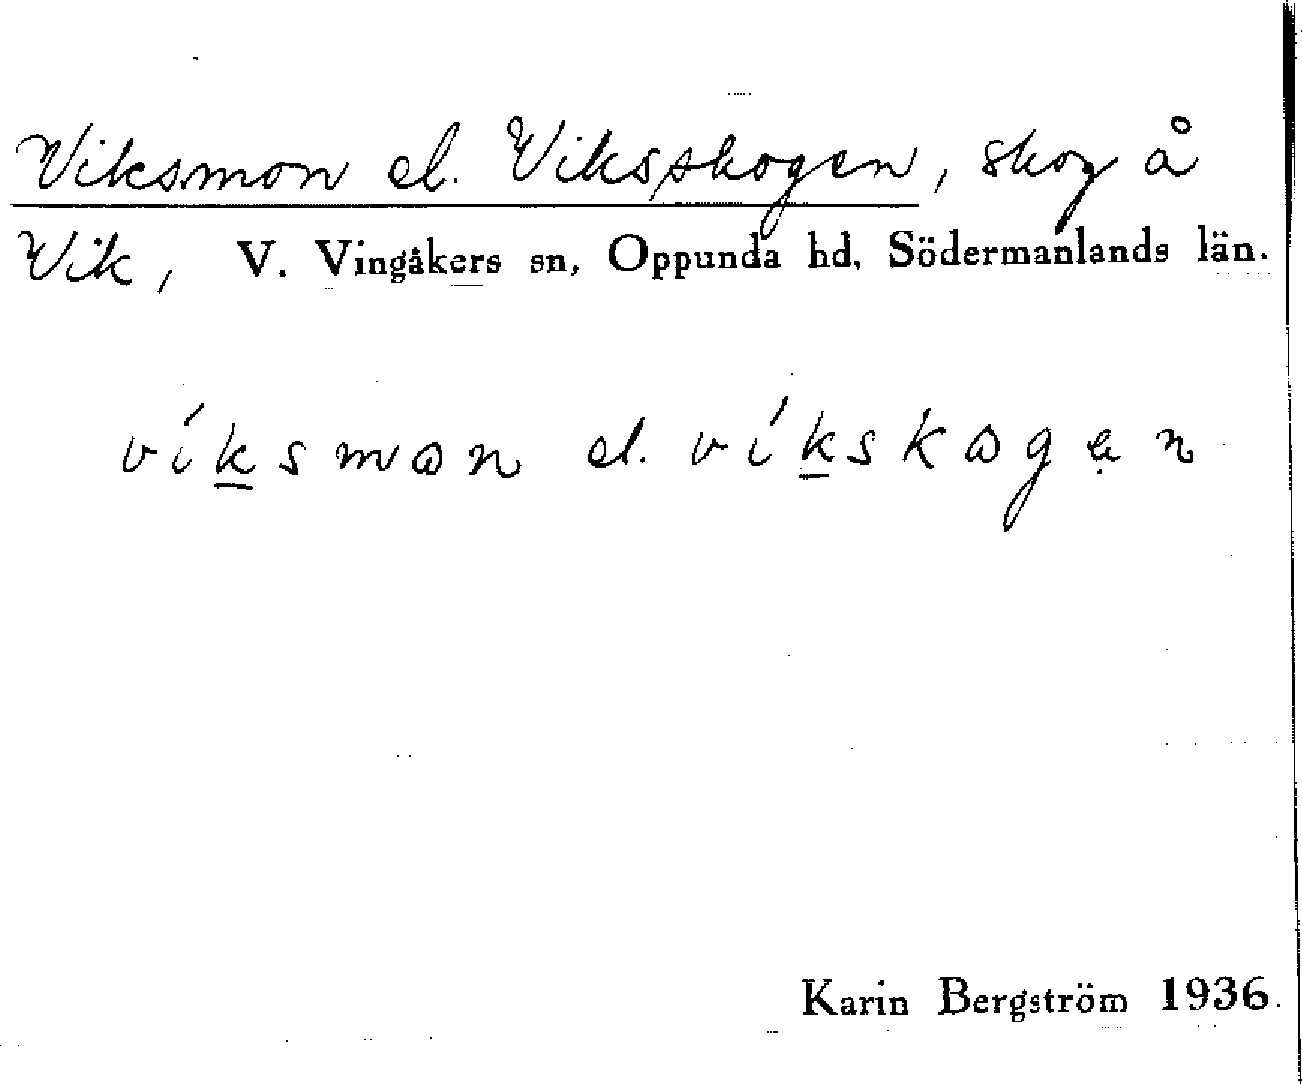 Viksmon el. Viksskogen, skog å
Vik, V. Vingåkers sn, Oppunda hd, Södermanlands län.
víksmωn el. víkskωgen
Karin Bergström 1936.